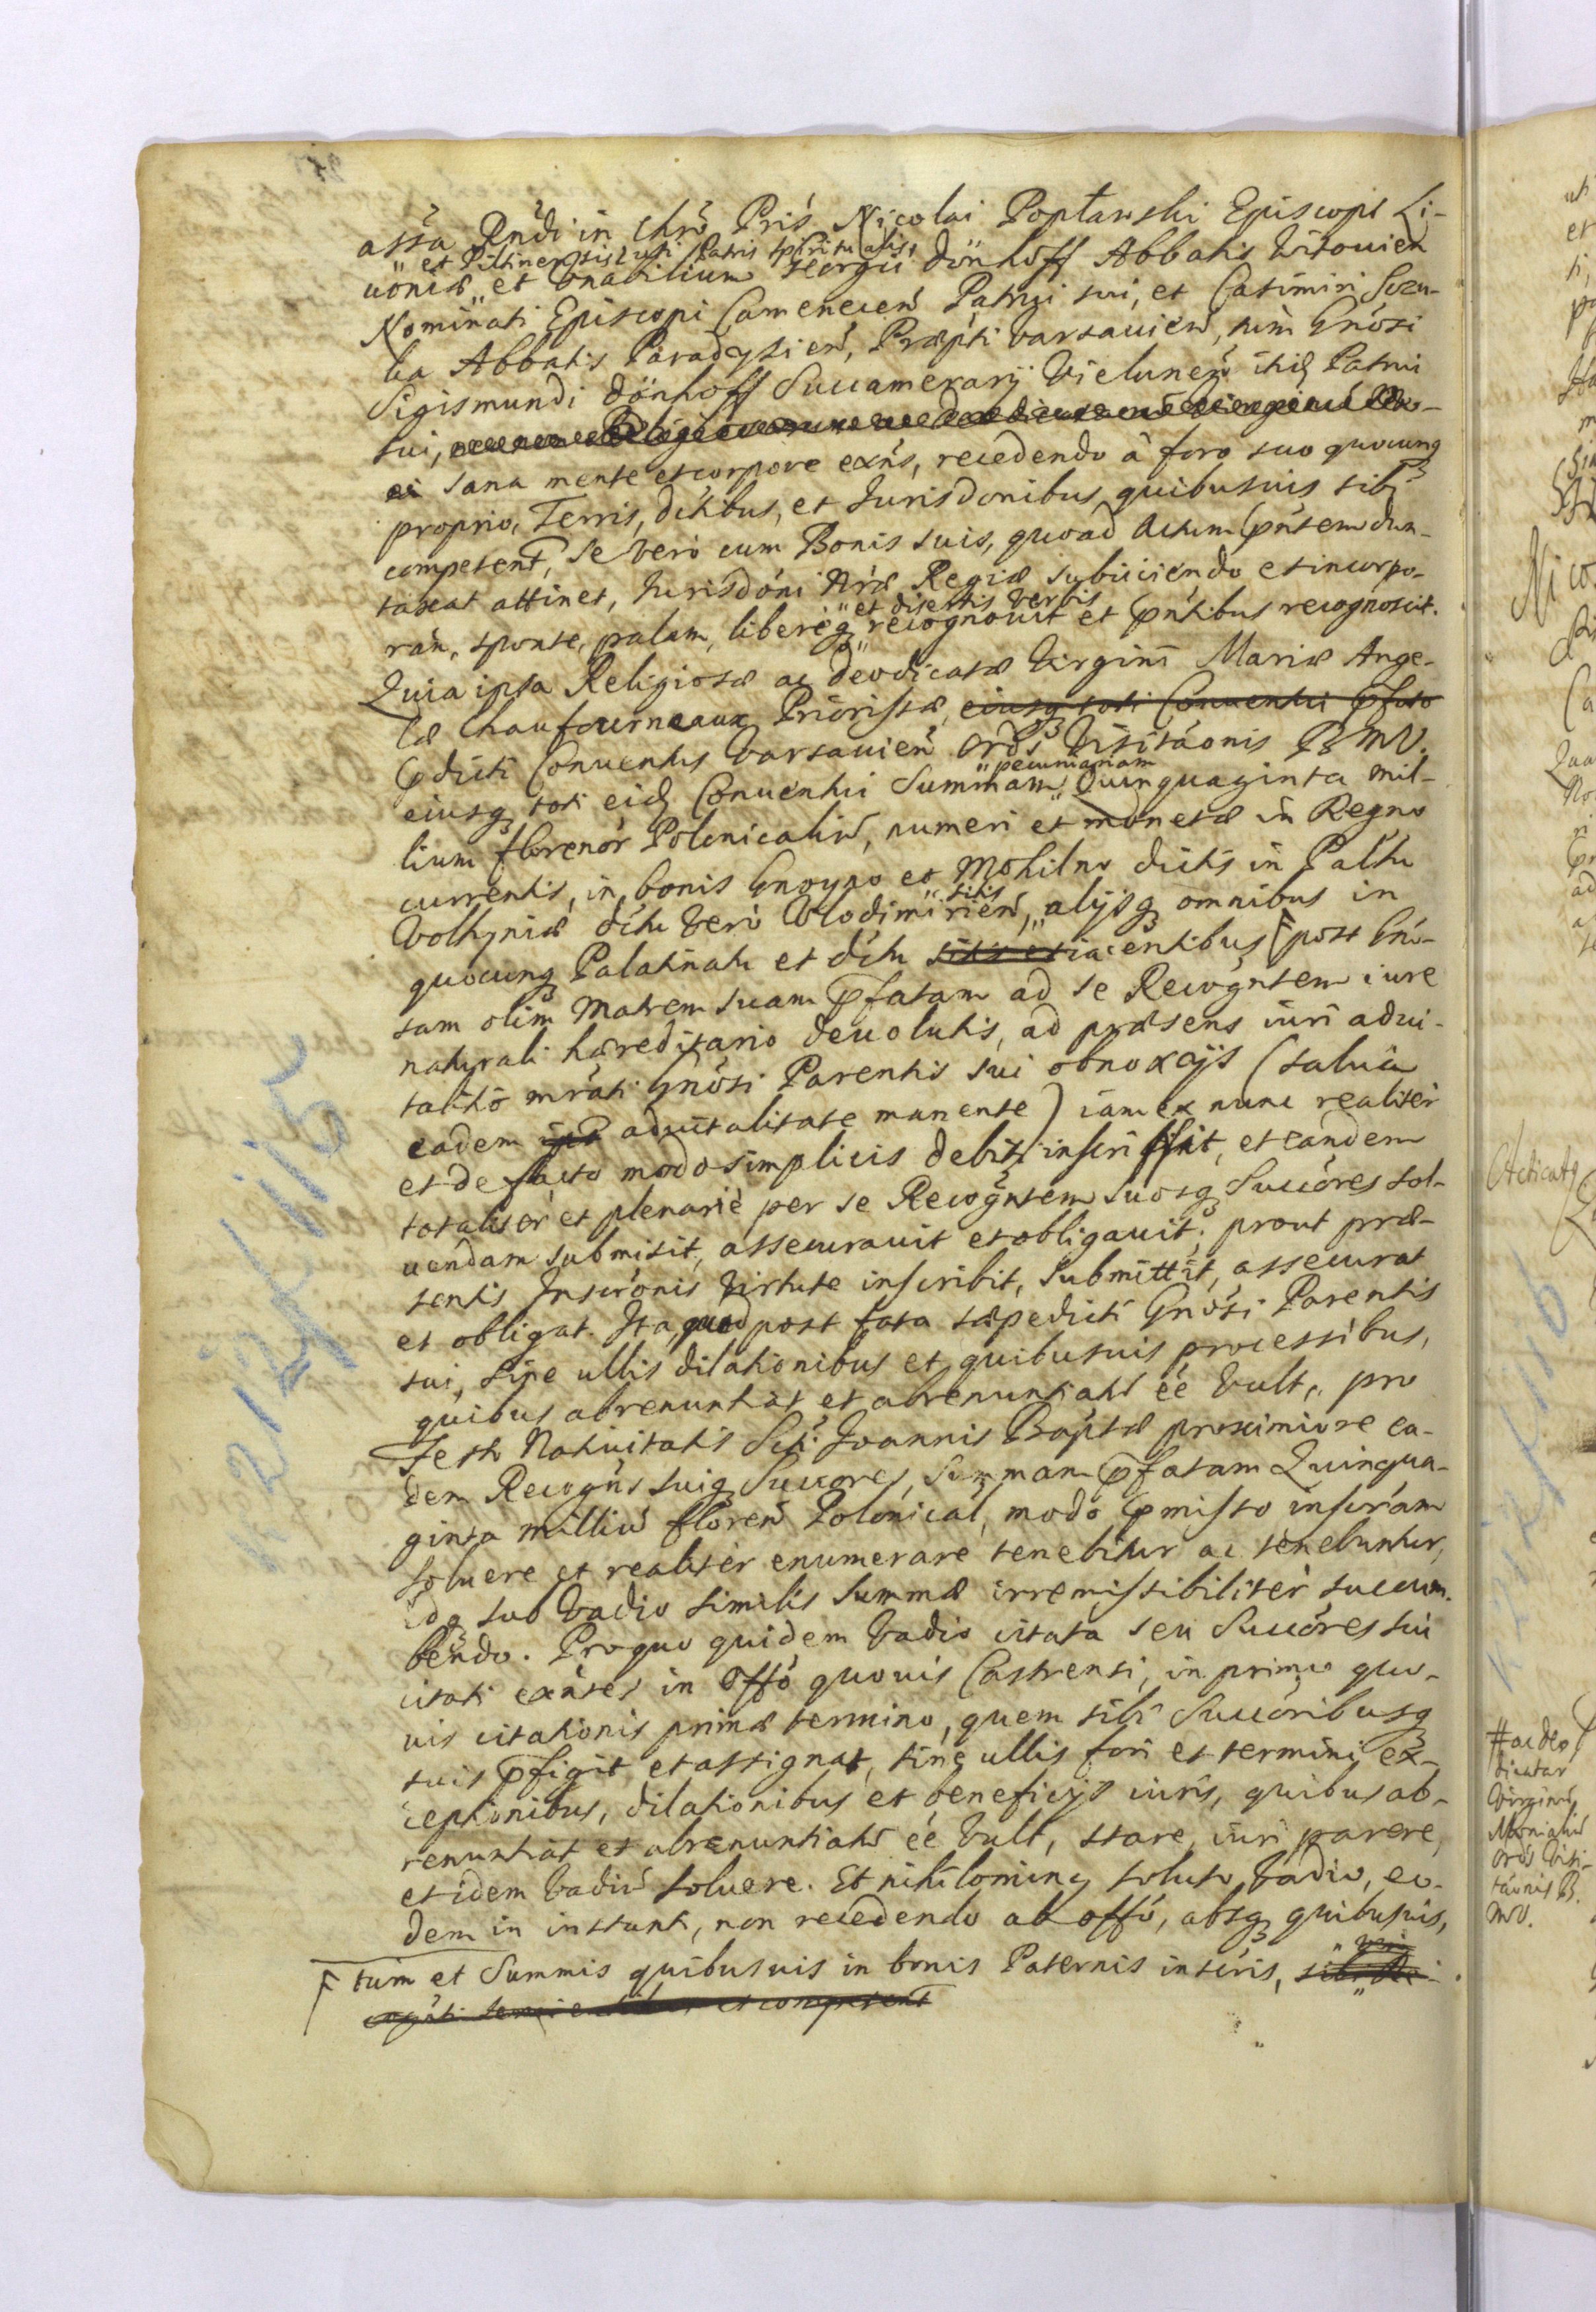 assa Rńdi in Chrō Prís Nicolai Popławski Episcopi Li-
" et Piltinensis sui Patris spiritualis,
uoniæ " et Vnabilium Georgii Dönhoff Abbatis Witouien
Nominati Episcopi Camenecen Patrui sui, et Casimiri Szczu-
ka Abbatis Paradysień, Præpti Varsauień, tum Gnósi
Sigismundi Dönhoff Succamerarÿ Vieluneń itid Patrui
sui,
sana mente et corpore exńs, recedendo à foro suo quocunq
proprio, Terris, dctibus, et Jurisdonibus quibusuis sibi
competent, se verò cum Bonis suis, quoad Actum pńtem dun-
taxat attinet, Jurisdóni Aræ Regiæ subiiciendo et incorpo-
rań, sponte, palam, libereq " et disertis verbis " recognouit et pńtibus recognoscit.
Quia ipsa Religiosæ ac Deodicatæ Virgini Mariæ Ange-
læ Chaufourneaux Priorissæ, eiusq toti Conuentui pfato
pdicti Conuentus Varsauień Ords Visitáonis BMV.
eiusq toti eid Conuentui Summam " pecuniariam " Quinquaginta mil-
lium florenor Polonicaliú, numeri et monetæ in Regno
currentis, in bonis Gnoyno et Mohilno dictis in Paltu
Volhyniæ dctu verò Vlodimirień, " sitis " alÿsq omnibus in
quocunq Palatinatu et dctu sitis et iacentibus post Gnó-
sam olim Matrem suam pfatam ad se Recogńtem iure
naturali hæreditario deuolutis, ad præsens iuri adui-
talitō mráti Gnósi Parentis sui obnoxÿs (salua
eadem ipst aduitalitate manente) iam ex nunc realiter
et de facto modo simplicis debiti inscripsit, et eandem
totaliter et plenariè per se Recogńtem suosq Succóres sol-
uendam submisit, assecurauit et obligauit; prout præ-
sentis Inscrónis virtute inscribit, submittit, assecurat
et obligat. Ita quod post fata sæpedicti Gnósi Parentis
sui, sine ullis dilationibus et quibusuis processibus,
quibus abrenuntiat et abrenuntiatú éé vult, pro
Festo Natiuitatis Scti Joannis Baptæ proximiore ea-
dem Recogńs suiq Succores, Summam pfatam Quinqua-
ginta Milliú floreń Polonical, modo pmisso inscriptam
soluere et realiter enumerare tenebitur ac tenebuntur,
idq sub vadio similis summæ irremissibiliter succum-
bendo. Pro quo quidem vadio citata seu Succóres sui
citati exńtes in Offó quouis Castrensi, in primo quo-
uis citationis primæ termino, quem sibi Succóribusq
suis pfigit et assignat, sine ullis fori et termini ex-
ceptionibus, dilationibus et beneficÿs iuris, quibus ab-
renuntiat et abrenuntiatú éé vult, stare, iuri parere,
et idem vadiú soluere. Et nihilominq soluto vadio, eo-
dem in instanti, non recedendo ab offó, absq quibusuis,
tum et Summis quibusuis in bonis Paternis inscris,
et competent